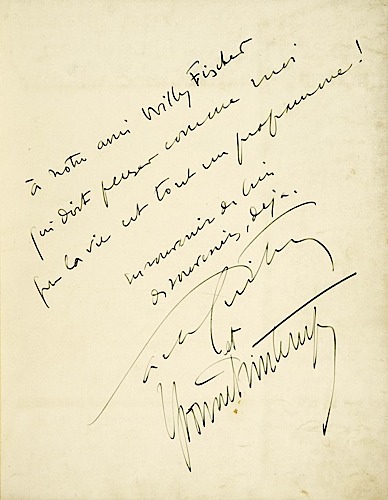 à notre ami Willy Fischer
qui doit penser comme moi
que la vie est tout un programme !
en souvenir de
souvenirs, déjà.
Sacha Guitry
et
Yvonne Printemps